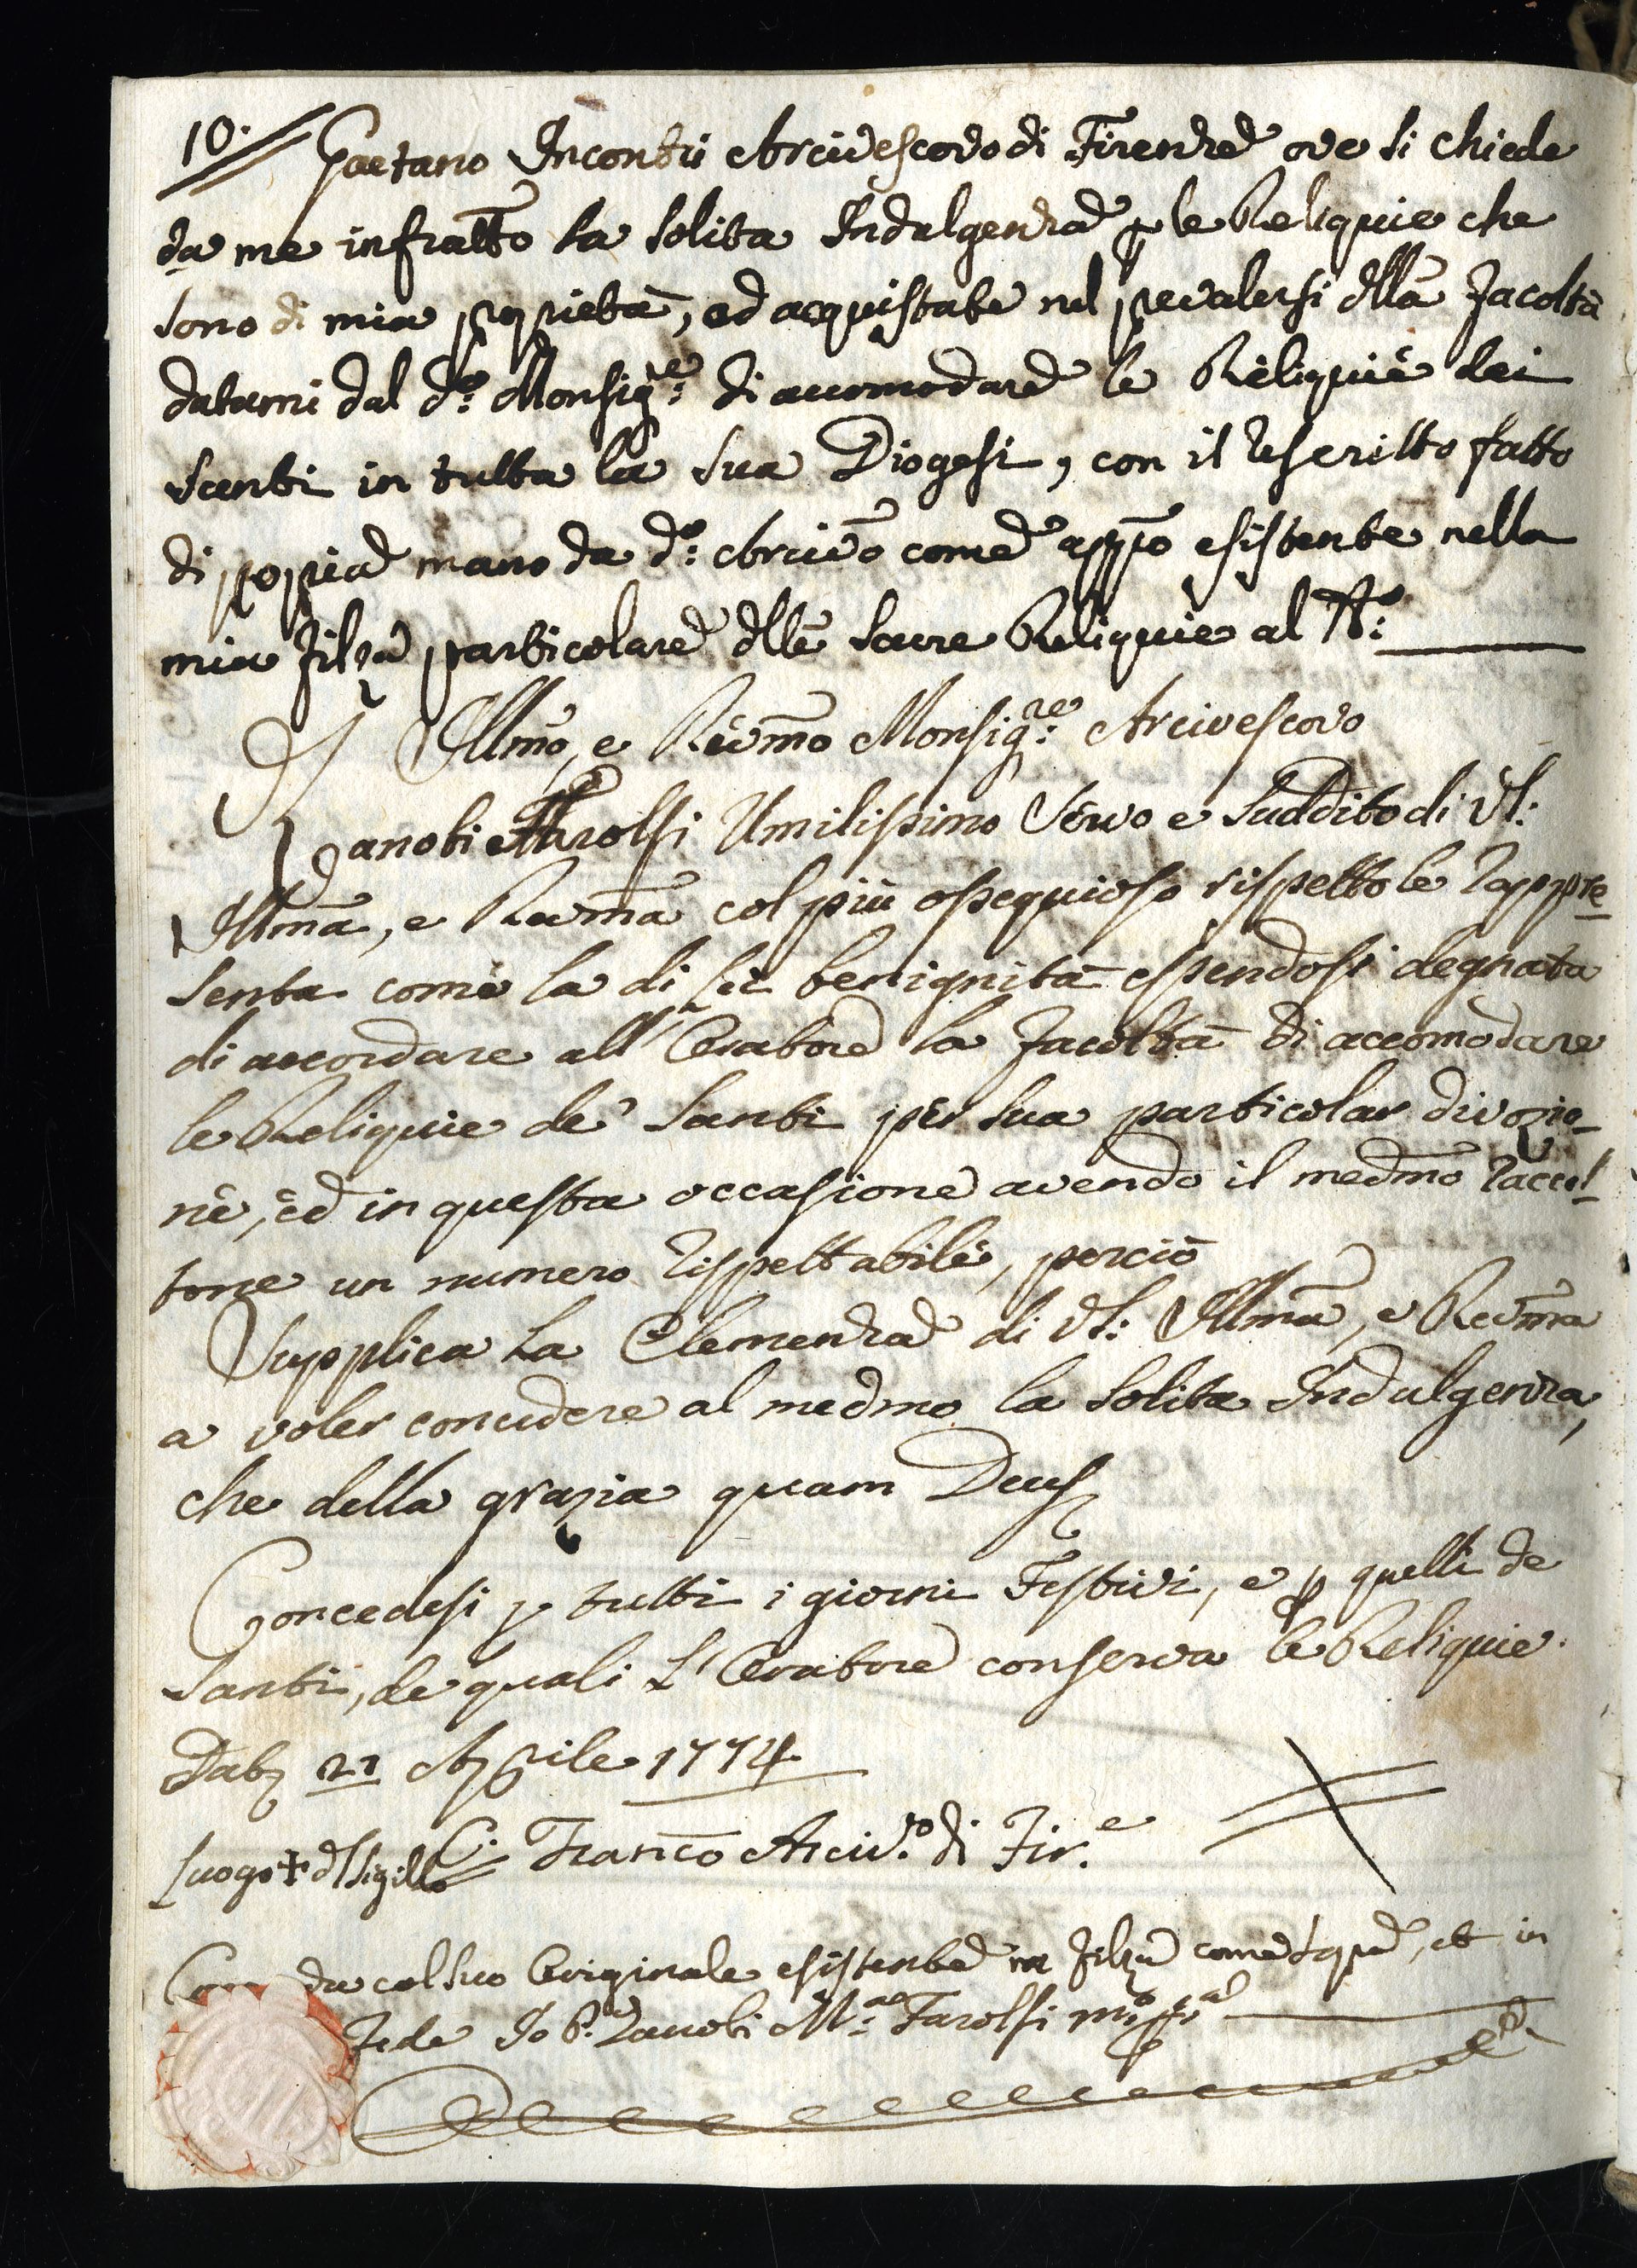 10. Gaetano Incontri Arcivescovo di Firenze ove si chiede
da me infratto la solita Indulgenza p le Reliquie che
sono di mia proprietà, ed acquistate nel prevalersi dlla facoltà
datami dal do: Monsigre: di accomodare le Reliquie dei
Santi in tutta la sua Diogesi, con il rescritto fatto
di propria mano da do: Arcivo come appo esistente nella
mia filza particolare dlle Sacre Reliquie al No:
Illmo, e Revmo Monsigre: Arcivescovo
Zanobi Tarolfi Umilissimo Servo e Suddito di VS:
Illma, e Revma col più ossequioso rispetto le rappre
senta come la di lei benignità essendosi degnata
di accordare all' Oratore la facoltà di accomodare
le Reliquie de' Santi per sua particolar divozio-
ne, ed in questa occasione avendo il medmo raccol-
tone un numero rispettabile, perciò
Supplica La Clemenza di VS: Illma, e Revma
a voler concedere al medmo la solita Indulgenza,
che della grazia quam Deus
Concedesi p tutti i giorni Festivi, e p quelli de
Santi, de quali L'Oratore conserva le Reliquie.
Dat 21 Aprile 1774
Luogo + dl Sigillo C. Franco Arcivo. di Fire.
da col suo Originale esistente in filza come, et in
Fede Io Pe. Zanobi Ma: Tarolfi mo ppa